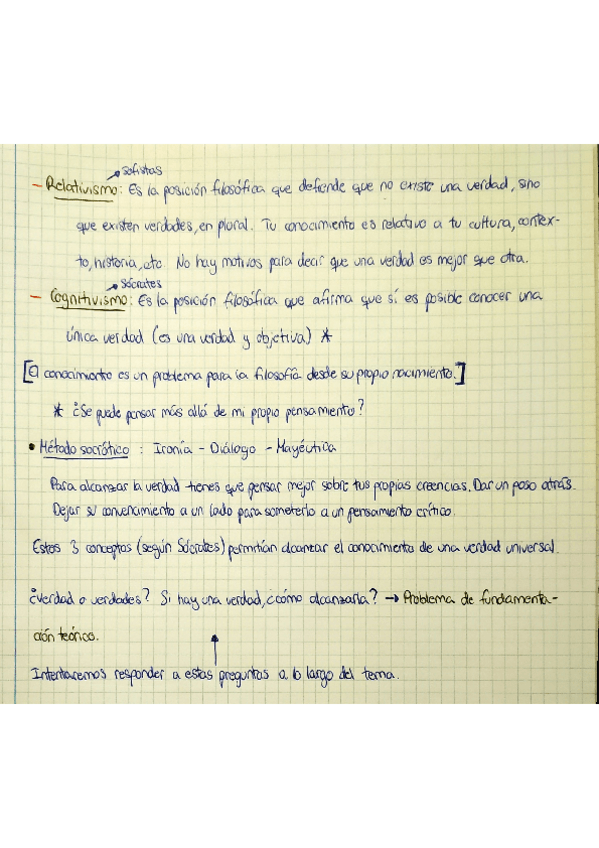 sofistas
- Relativismo: Es la posición filosófica que defiende que no existe una verdad, sino
que existen verdades, en plural. Tu conocimiento es relativo a tu cultura, contex-
to, historia, etc. No hay motivos para decir que una verdad es mejor que otra.
Sócrates
- Cognitivismo: Es la posición filosófica que afirma que sí es posible conocer una
única verdad (es una verdad y objetiva) *
[El conocimiento es un problema para la filosofía desde su propio nacimiento.]
* ¿Se puede pensar más allá de mi propio pensamiento?
• Método socrático : Ironía - Diálogo - Mayéutica
Para alcanzar la verdad tienes que pensar mejor sobre tus propias creencias. Dar un paso atrás.
Dejar su convencimiento a un lado para someterlo a un pensamiento crítico.
Estos 3 conceptos (según Sócrates) permitían alcanzar el conocimiento de una verdad universal.
¿Verdad o verdades? Si hay una verdad, ¿cómo alcanzarla? → Problema de fundamenta-
ción teórico.
Intentaremos responder a estas preguntas a lo largo del tema.